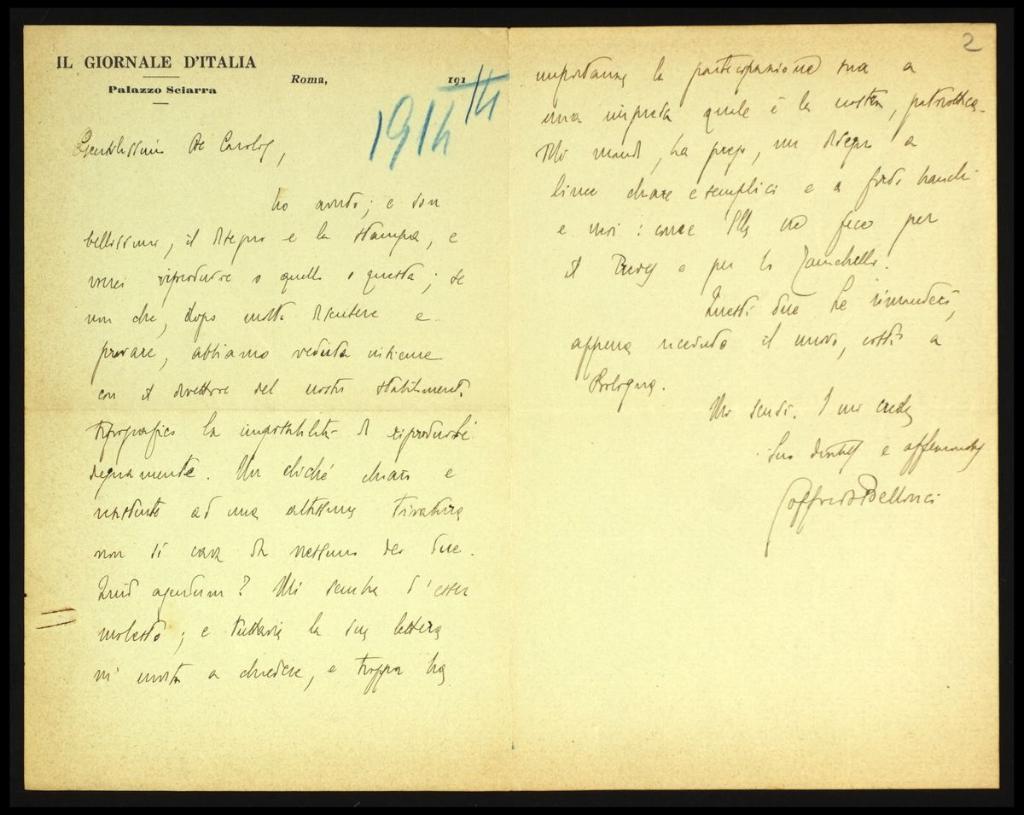 IL GIORNALE D'ITALIA
Palazzo Sciarra
Roma, 191
1914
14
Gentilissimo De Carolis,
ho avuto; e son
bellissimi, il disegno e la stampa, e
vorrei riprodurre o quello o questa; se
non che, dopo molto discutere e
provare, abbiamo veduta insieme
con il direttore del nostro stabilimento
tipografico la impossibilità di riprodurli
degnamente. Un cliché chiaro e
resistente ad una altissima tiratura
non si cava da nessuno dei due.
Quid agendum? Mi sembra d'esser
molesto; e tuttavia la sua lettera
m' invita a chiedere, e troppa ha
2
importanza la partecipazione sua a
una impresa quale è la nostra, patriottica.
Mi mandi, la prego, un disegno a
linee chiare e semplici e a fondi bianchi
e neri: come Ella ne fece per
il e per lo Zanichelli.
Questi due Le rimanderò,
appena ricevuto il nuovo, costì a
Bologna.
Mi scusi. E mi creda
Suo devoto e affezionato
Goffredo Bellonci